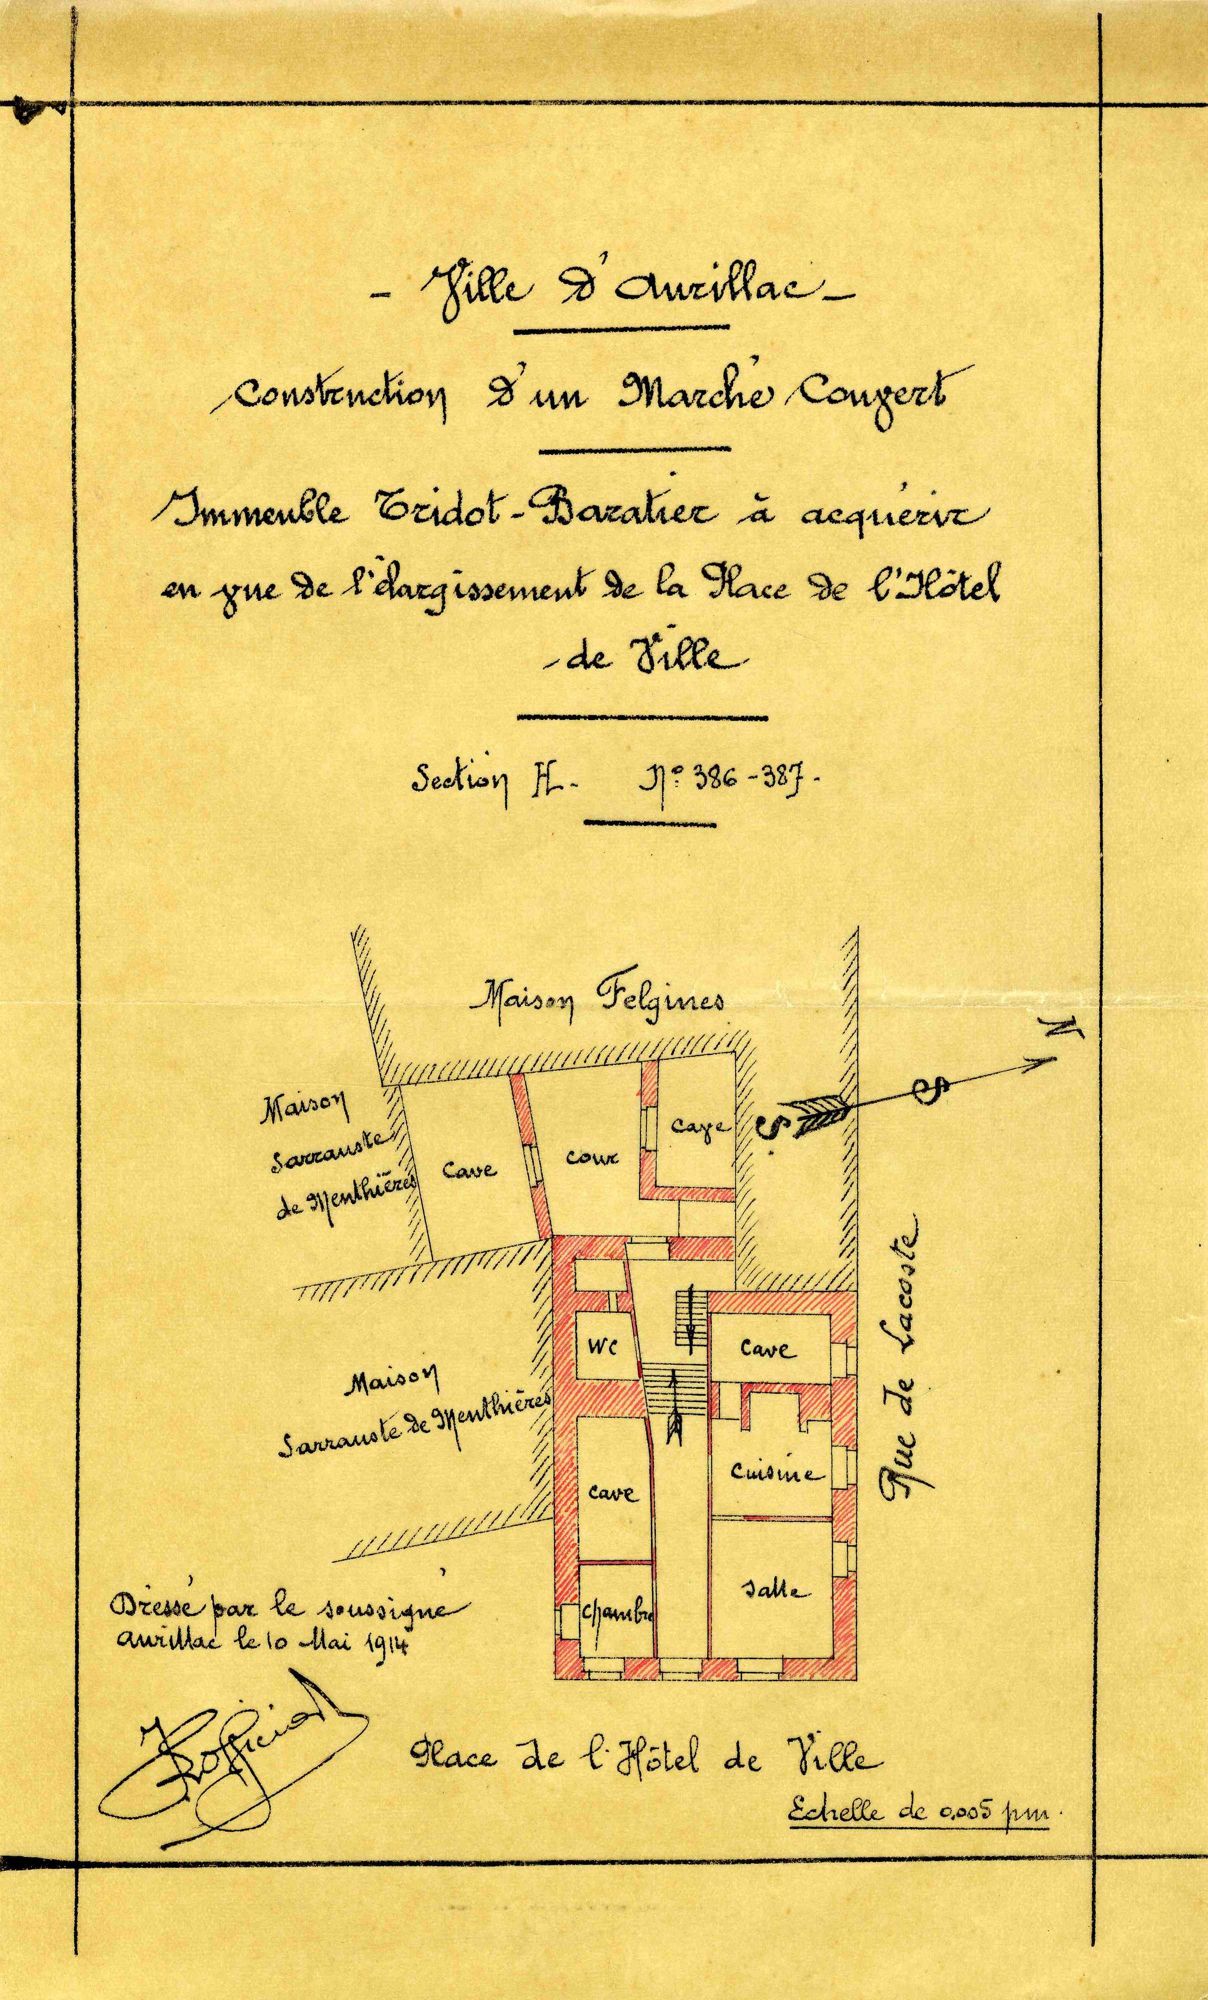 - Ville d'Aurillac -
Construction d'un Marché Couvert
Immeuble Tridot-Baratier à acquérir
en vue de l'élargissement de la Place de l'Hôtel
- de Ville
Section H - N° 386-387 -
Maison Felgines
N
S
S
Maison
Sarrauste
de Menthières
Cave
Cour
Cave
Rue de Lacoste
WC
Cave
Maison
Sarrauste de Menthières
Cave
Cuisine
Salle
Chambre
Dressé par le soussigné
Aurillac le 10 Mai 1914
Place de l'Hôtel de Ville
Echelle de 0.005 pm.